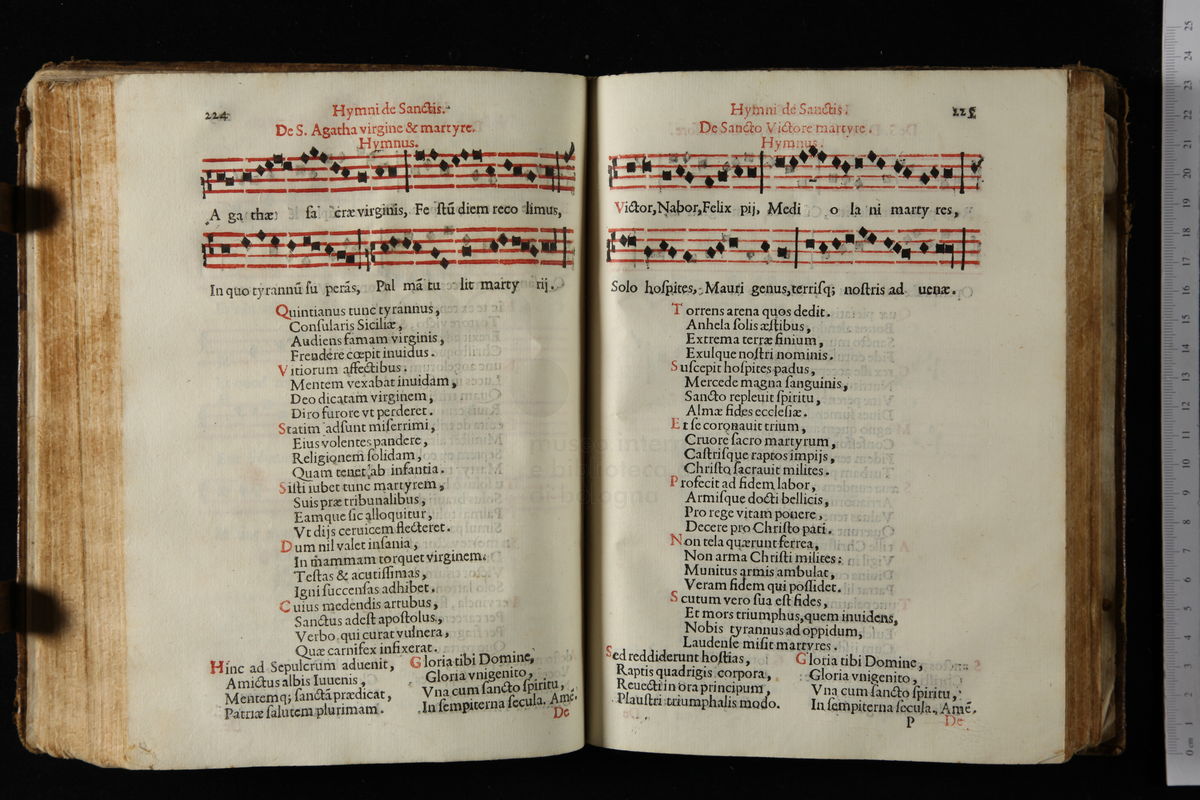 224
Hymni de Sanctis.
De S. Agatha virgine & martyre.
Hymnus.
A ga thæ sa cræ virginis, Fe stũ diem reco limus,
In quo tyrannũ su perãs, Pal mã tu lit marty rij.
Quintianus tunc tyrannus,
Consularis Siciliæ,
Audiens famam virginis,
Frendere cœpit inuidus.
Vitiorum affectibus.
Mentem vexabat inuidam,
Deo dicatam virginem,
Diro furore vt perderet.
Statim adsunt miserrimi,
Eius volentes pandere,
Religionem solidam,
Quam tenet ab infantia.
Sisti iubet tunc martyrem,
Suis præ tribunalibus,
Eamque sic alloquitur,
Vt dijs ceruicem flecteret.
Dum nil valet insania,
In mammam torquet virginem.
Testas & acutissimas,
Igni succensas adhibet.
Cuius medendis artubus,
Sanctus adest apostolus,
Verbo qui curat vulnera,
Quæ carnifex infixerat.
Hinc ad Sepulcrum aduenit,
Amictus albis Iuuenis,
Mentemq; sanctã prædicat,
Patriæ salutem plurimam.
Gloria tibi Domine,
Gloria vnigenito,
Vna cum sancto spiritu,
In sempiterna secula. Amẽ.
De
225
Hymni de Sanctis.
De Sancto Victore martyre.
Hymnus.
Victor, Nabor, Felix pij, Medi o la ni marty res,
Solo hospites, Mauri genus, terrisq; nostris ad uenæ.
Torrens arena quos dedit.
Anhela solis æstibus,
Extrema terræ finium,
Exulque nostri nominis.
Suscepit hospites padus,
Mercede magna sanguinis,
Sancto repleuit spiritu,
Almæ fides ecclesiæ.
Et se coronauit trium,
Cruore sacro martyrum,
Castrisque raptos impijs,
Christo sacrauit milites.
Profecit ad fidem labor,
Armisque docti bellicis,
Pro rege vitam ponere,
Decere pro Christo pati.
Non tela quærunt ferrea,
Non arma Christi milites:
Munitus armis ambulat,
Veram fidem qui possidet.
Scutum vero sua est fides,
Et mors triumphus, quem inuidens,
Nobis tyrannus ad oppidum,
Laudense misit martyres.
Sed reddiderunt hostias,
Raptis quadrigis corpora,
Reuecti in ora principum,
Plaustri triumphalis modo.
Gloria tibi Domine,
Gloria vnigenito,
Vna cum sancto spiritu,
In sempiterna secula. Amẽ.
P De